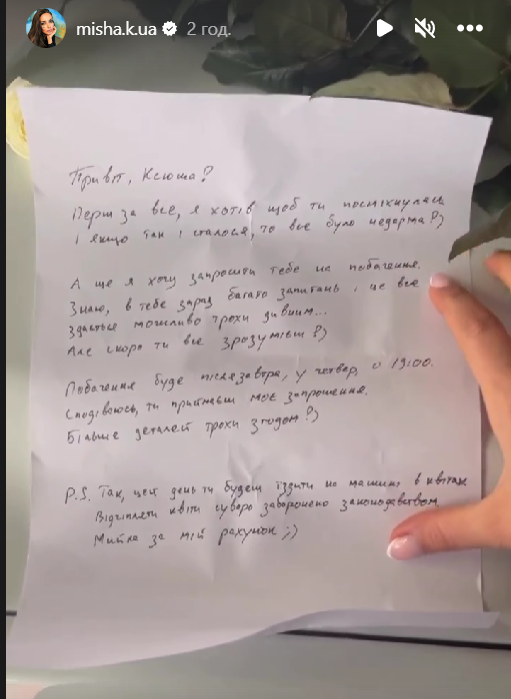 misha.k.ua 2 год.
Привіт, Ксюша?
Перш за все, я хотів щоб ти посміхнулась
і якщо так і сталося, то все було недарма?)
А ще я хочу запросити тебе на побачення.
Знаю, в тебе зараз багато запитань і це все
здається можливо трохи дивним...
Але скоро ти все зрозумієш?)
Побачення буде післязавтра, у четвер, о 19:00.
Сподіваюсь, ти приймаєш моє запрошення.
Більше деталей трохи згодом?)
P.S. Так, цей день ти будеш їздити на машині в квітах
Відчіпляти квіти суворо заборонено законодавством.
Мийка за мій рахунок ;)